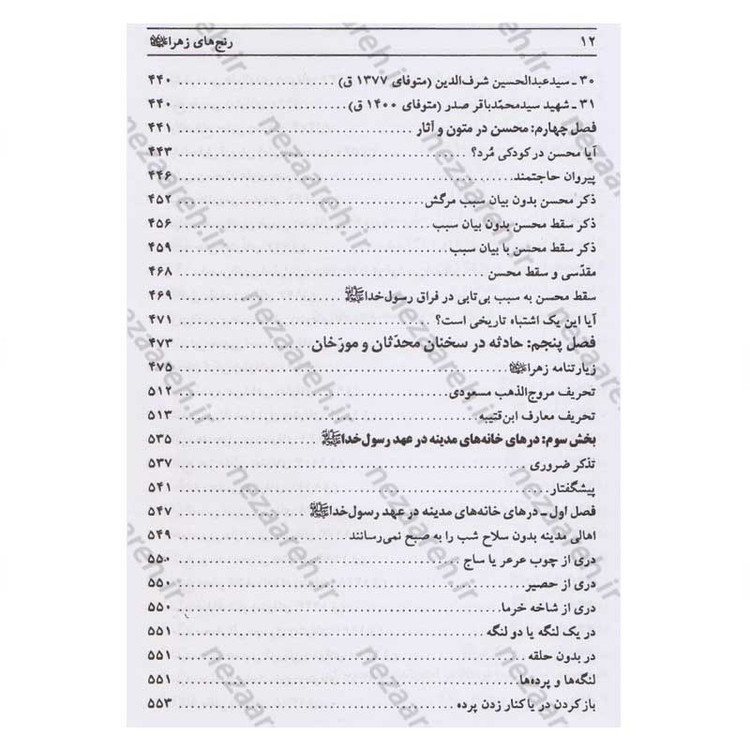 ۱۲ رنج‌های زهرا علیها السلام
۳۰ ـ سیدعبدالحسین شرف‌الدین (متوفای ۱۳۷۷ ق) ۴۴۰
۳۱ ـ شهید سیدمحمّدباقر صدر (متوفای ۱۴۰۰ ق) ۴۴۰
فصل چهارم: محسن در متون و آثار ۴۴۱
آیا محسن در کودکی مُرد؟ ۴۴۳
پیروان حاجتمند ۴۴۶
ذکر محسن بدون بیان سبب مرگش ۴۵۲
ذکر سقط محسن بدون بیان سبب ۴۵۶
ذکر سقط محسن با بیان سبب ۴۵۹
مقدّسی و سقط محسن ۴۶۸
سقط محسن به سبب بی‌تابی در فراق رسول‌خدا ﷺ ۴۶۹
آیا این یک اشتباه تاریخی است؟ ۴۷۱
فصل پنجم: حادثه در سخنان محدّثان و مورّخان ۴۷۳
زیارتنامه زهرا علیها السلام ۴۷۵
تحریف مروج‌الذهب مسعودی ۵۱۲
تحریف معارف ابن‌قتیبه ۵۱۳
بخش سوم: درهای خانه‌های مدینه در عهد رسول‌خدا ﷺ ۵۳۵
تذکر ضروری ۵۳۷
پیشگفتار ۵۴۱
فصل اول ـ درهای خانه‌های مدینه در عهد رسول‌خدا ﷺ ۵۴۷
اهالی مدینه بدون سلاح شب را به صبح نمی‌رسانند ۵۴۹
دری از چوب عرعر یا ساج ۵۵۰
دری از حصیر ۵۵۰
دری از شاخه خرما ۵۵۰
در یک لنگه یا دو لنگه ۵۵۱
در بدون حلقه ۵۵۱
لنگه‌ها و پرده‌ها ۵۵۱
باز کردن در یا کنار زدن پرده ۵۵۳
nezaareh.ir